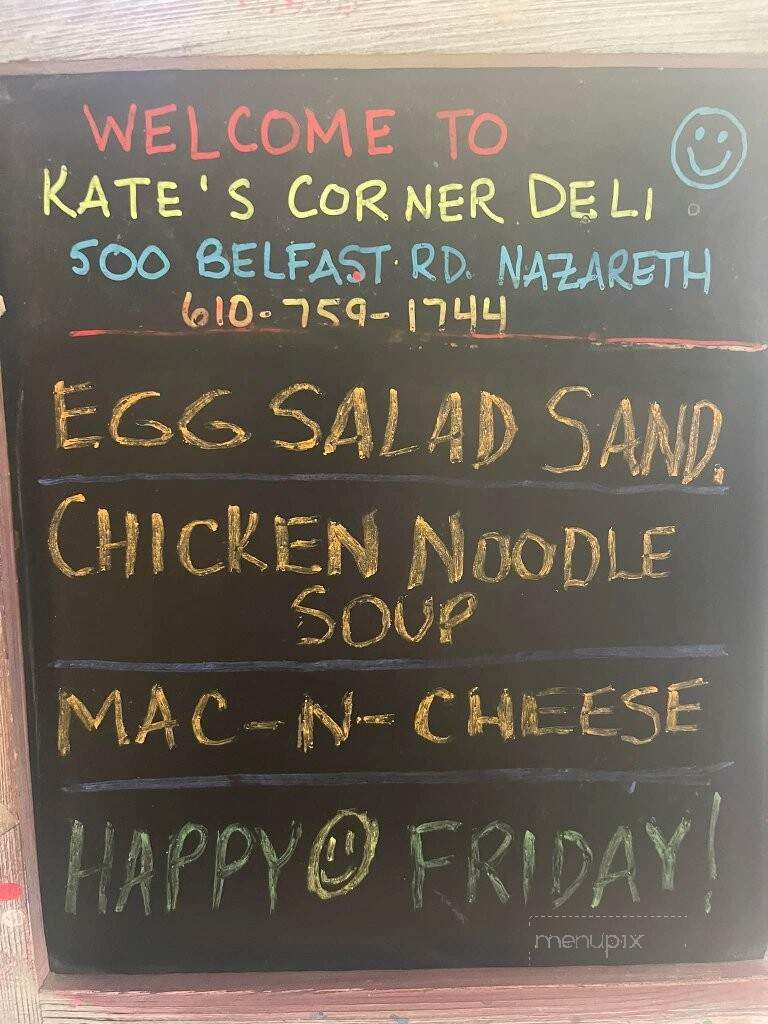 WELCOME TO
KATE'S CORNER DELI
500 BELFAST RD. NAZARETH
610-759-1744
EGG SALAD SAND.
CHICKEN NOODLE
SOUP
MAC-N-CHEESE
HAPPY FRIDAY!
menupix